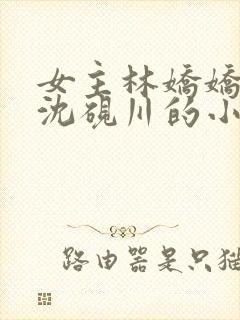 女主林嬌嬌
沈硯川的小
路由器是只猫